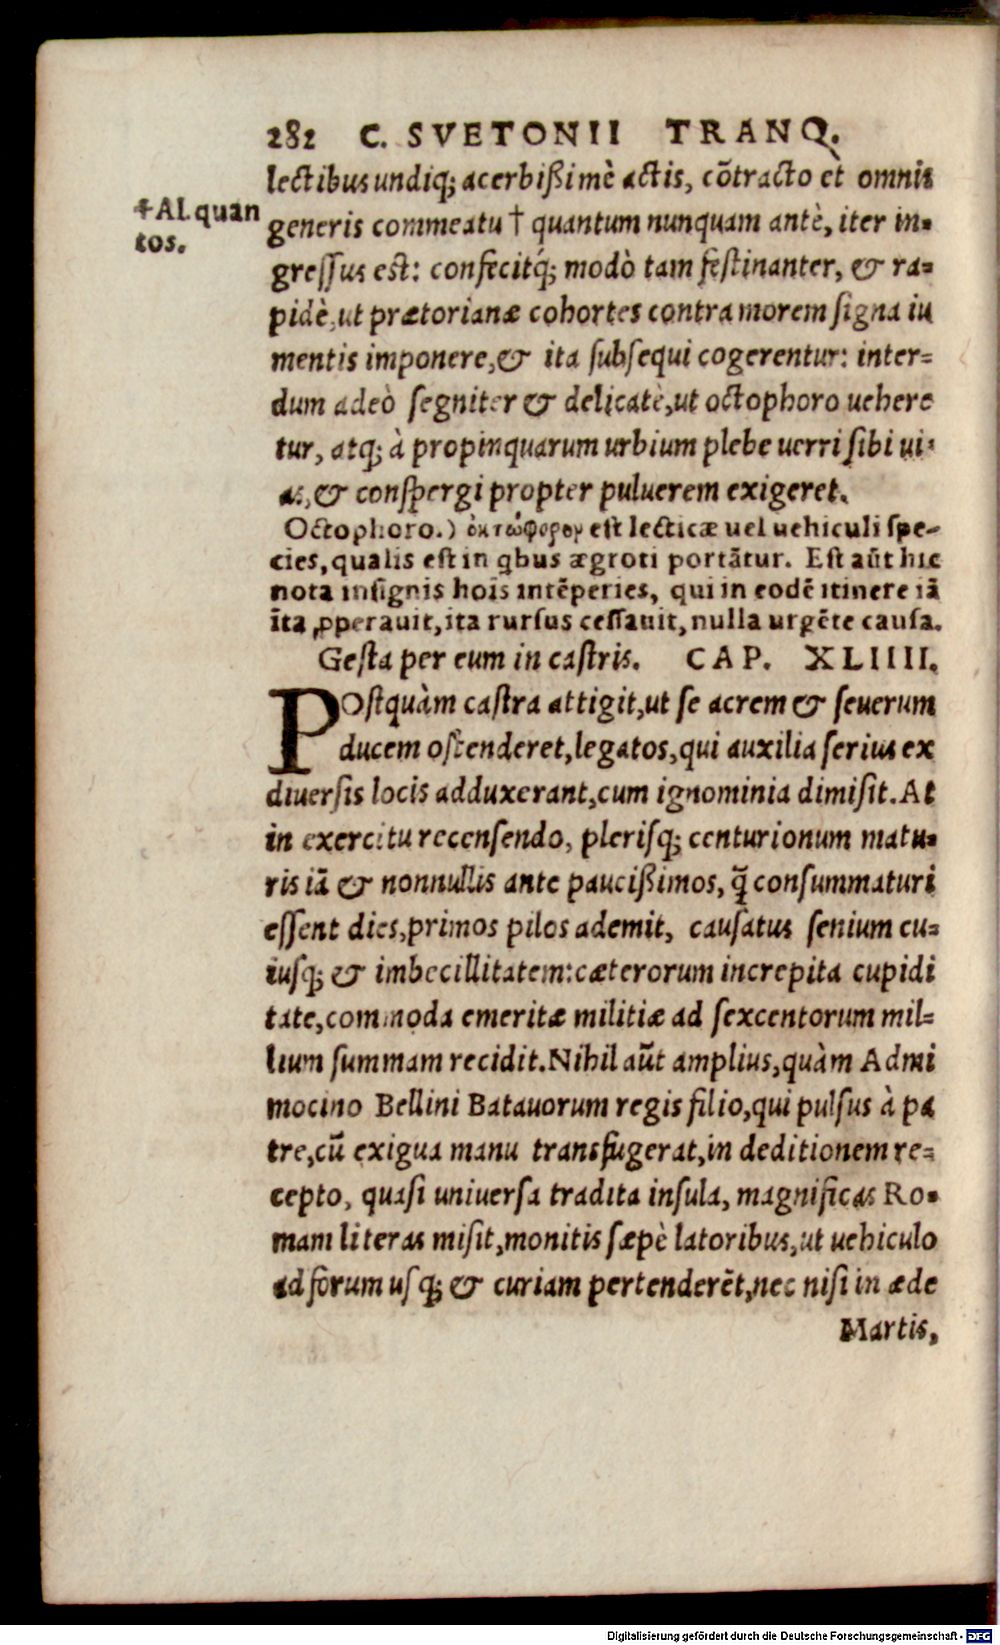 282 C. SVETONII TRANQ.
lectibus undiq; acerbißimè actis, cõtracto et omnis
†Al. quan
tos.
generis commeatu † quantum nunquam antè, iter in-
gressus est: confecitq́; modò tam festinanter, & ra-
pidè, ut prætorianæ cohortes contra morem signa iu
mentis imponere, & ita subsequi cogerentur: inter-
dum adeò segniter & delicatè, ut octophoro uehere
tur, atq; à propinquarum urbium plebe uerri sibi ui-
as, & conspergi propter puluerem exigeret.
Octophoro.) ὀκτώφορον est lecticæ uel uehiculi spe-
cies, qualis est in qbus ægroti portãtur. Est aũt hic
nota insignis hoĩs intẽperies, qui in eodẽ itinere iã
ĩta ꝓperauit, ita rursus cessauit, nulla urgẽte causa.
Gesta per eum in castris. CAP. XLIIII.
POstquàm castra attigit, ut se acrem & seuerum
ducem ostenderet, legatos, qui auxilia serius ex
diuersis locis adduxerant, cum ignominia dimisit. At
in exercitu recensendo, plerisq; centurionum matu-
ris iã & nonnullis ante paucißimos, q̃ consummaturi
essent dies, primos pilos ademit, causatus senium cu-
iusq; & imbecillitatem: cæterorum increpita cupidi
tate, commoda emeritæ militiæ ad sexcentorum mil-
lium summam recidit. Nihil aũt amplius, quàm Admi
mocino Bellini Batauorum regis filio, qui pulsus à pa
tre, cũ exigua manu transfugerat, in deditionem re-
cepto, quasi uniuersa tradita insula, magnificas Ro-
mam literas misit, monitis sæpè latoribus, ut uehiculo
ad forum usq; & curiam pertenderẽt, nec nisi in æde
Martis,
Digitalisierung gefördert durch die Deutsche Forschungsgemeinschaft - DFG